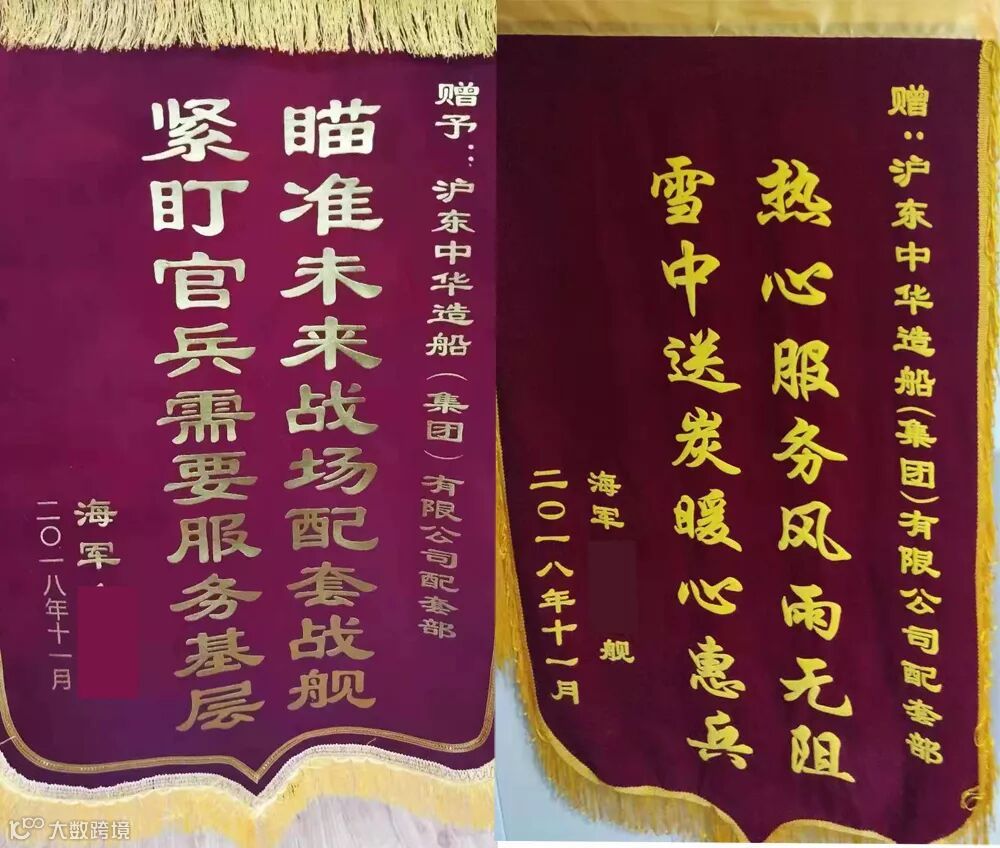 赠予：沪东中华造船（集团）有限公司配套部
瞄准未来战场配套战舰
紧盯官兵需要服务基层
海军
二〇一八年十一月
赠：沪东中华造船（集团）有限公司配套部
热心服务风雨无阻
雪中送炭暖心惠兵
海军 舰
二〇一八年十一月
大数跨境